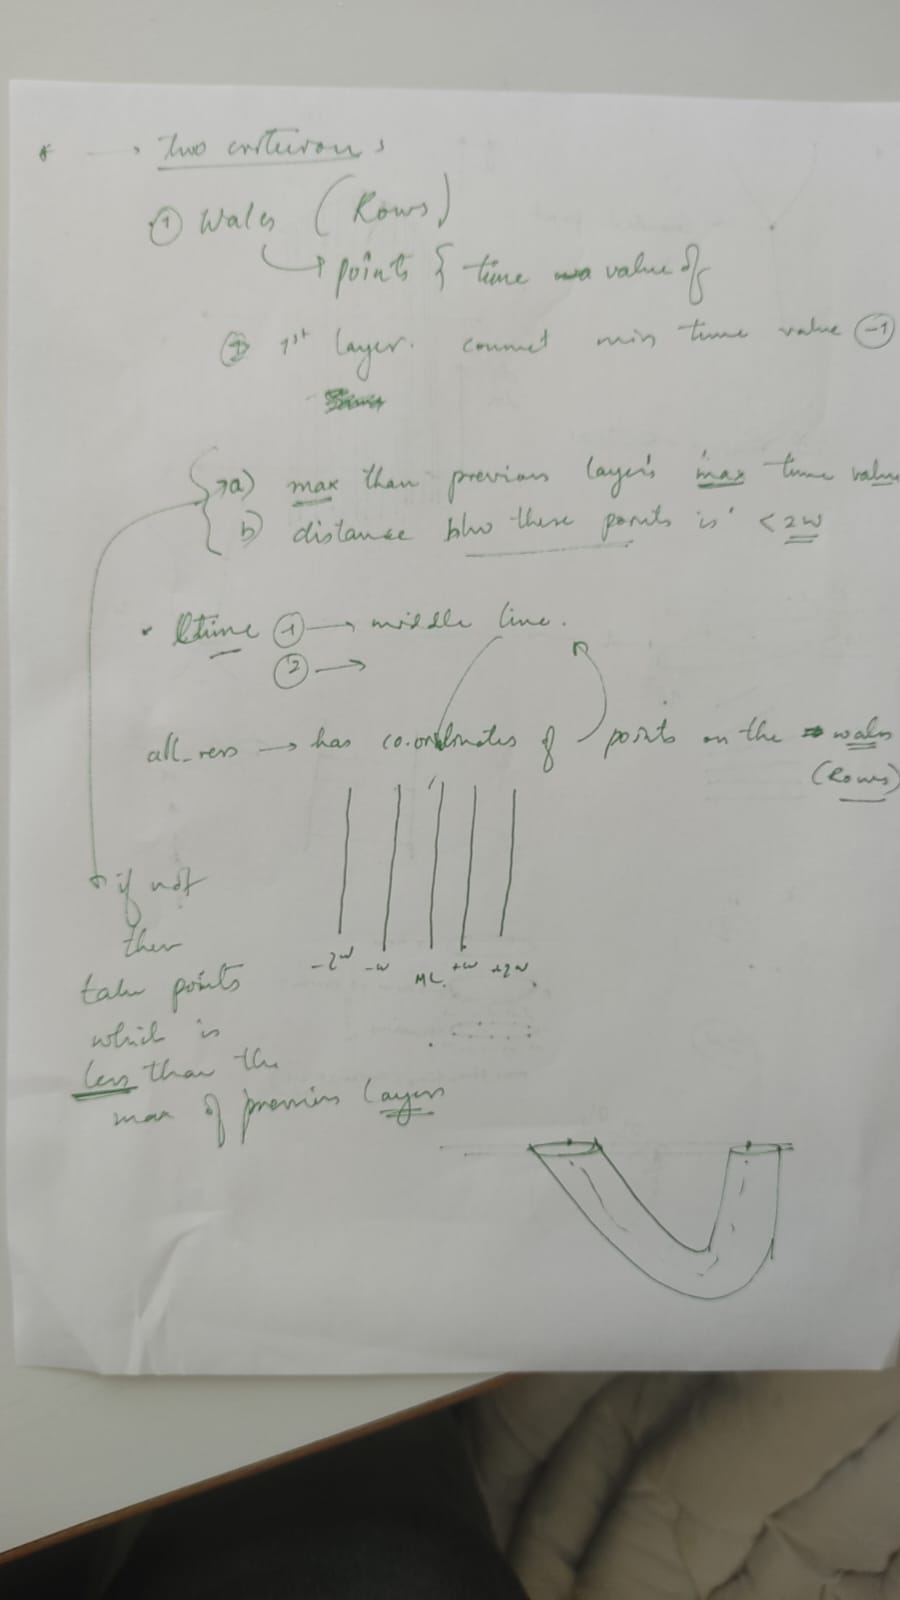 * → two criterions
① Wales (Rows)
↳ points { time value of
① 1st layer. connect min time value ①
a) max than previous layer's max time value
b) distance b/w these points is < 2w
• time ① → middle line.
② →
all_rers → has co.ordinates of points on the wales
(Rows)
-2w -w ML. +w +2w
if not
then
take points
which is
less than the
max of previous layers